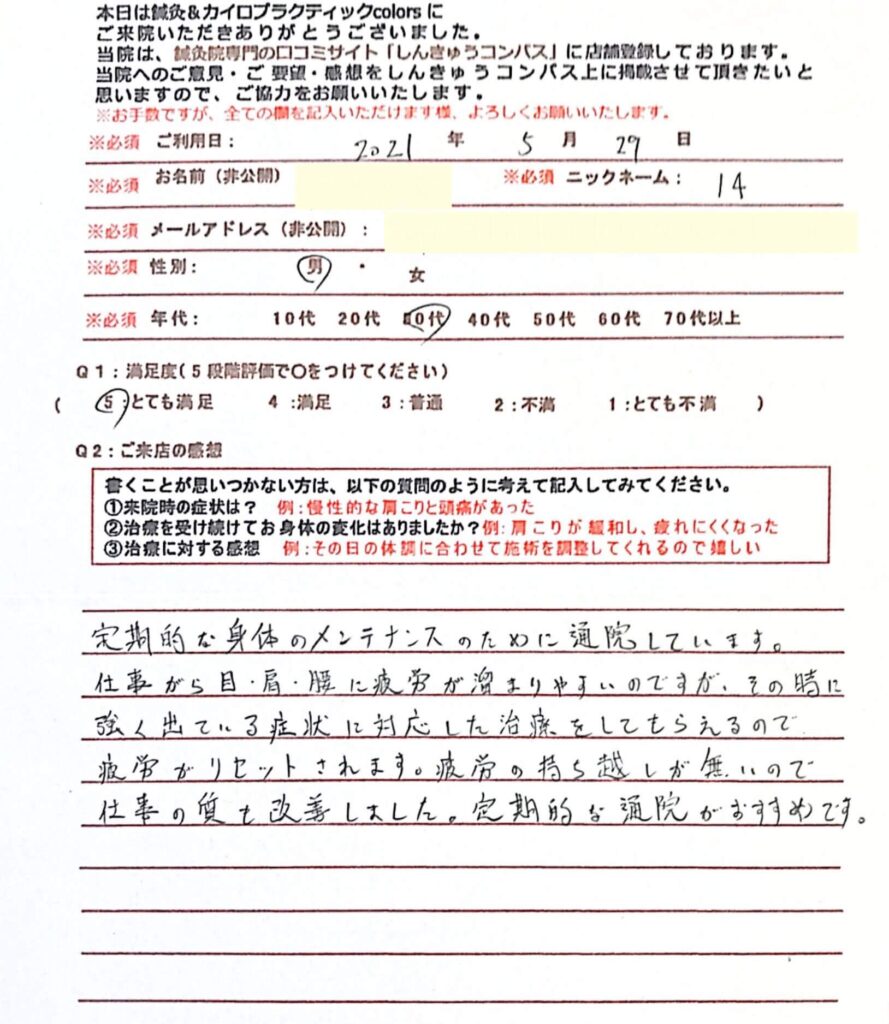 本日は鍼灸&カイロプラクティックcolorsに
ご来院いただきありがとうございました。
当院は、鍼灸院専門の口コミサイト「しんきゅうコンパス」に店舗登録しております。
当院へのご意見・ご要望・感想をしんきゅうコンパス上に掲載させて頂きたいと
思いますので、ご協力をお願いいたします。
※お手数ですが、全ての欄を記入いただけます様、よろしくお願いいたします。
※必須 ご利用日: 2021 年 5 月 29 日
※必須 お名前(非公開) ※必須 ニックネーム: 14
※必須 メールアドレス(非公開):
※必須 性別: 男 ・ 女
※必須 年代: 10代 20代 30代 40代 50代 60代 70代以上
Q1:満足度(5段階評価で〇をつけてください)
( 5:とても満足 4:満足 3:普通 2:不満 1:とても不満 )
Q2:ご来店の感想
書くことが思いつかない方は、以下の質問のように考えて記入してみてください。
①来院時の症状は? 例:慢性的な肩こりと頭痛があった
②治療を受け続けてお身体の変化はありましたか?例:肩こりが緩和し、疲れにくくなった
③治療に対する感想 例:その日の体調に合わせて施術を調整してくれるので嬉しい
定期的な身体のメンテナンスのために通院しています。
仕事がら目・肩・腰に疲労が溜まりやすいのですが、その時に
強く出ている症状に対応した治療をしてもらえるので
疲労がリセットされます。疲労の持ち越しが無いので
仕事の質も改善しました。定期的な通院がおすすめです。